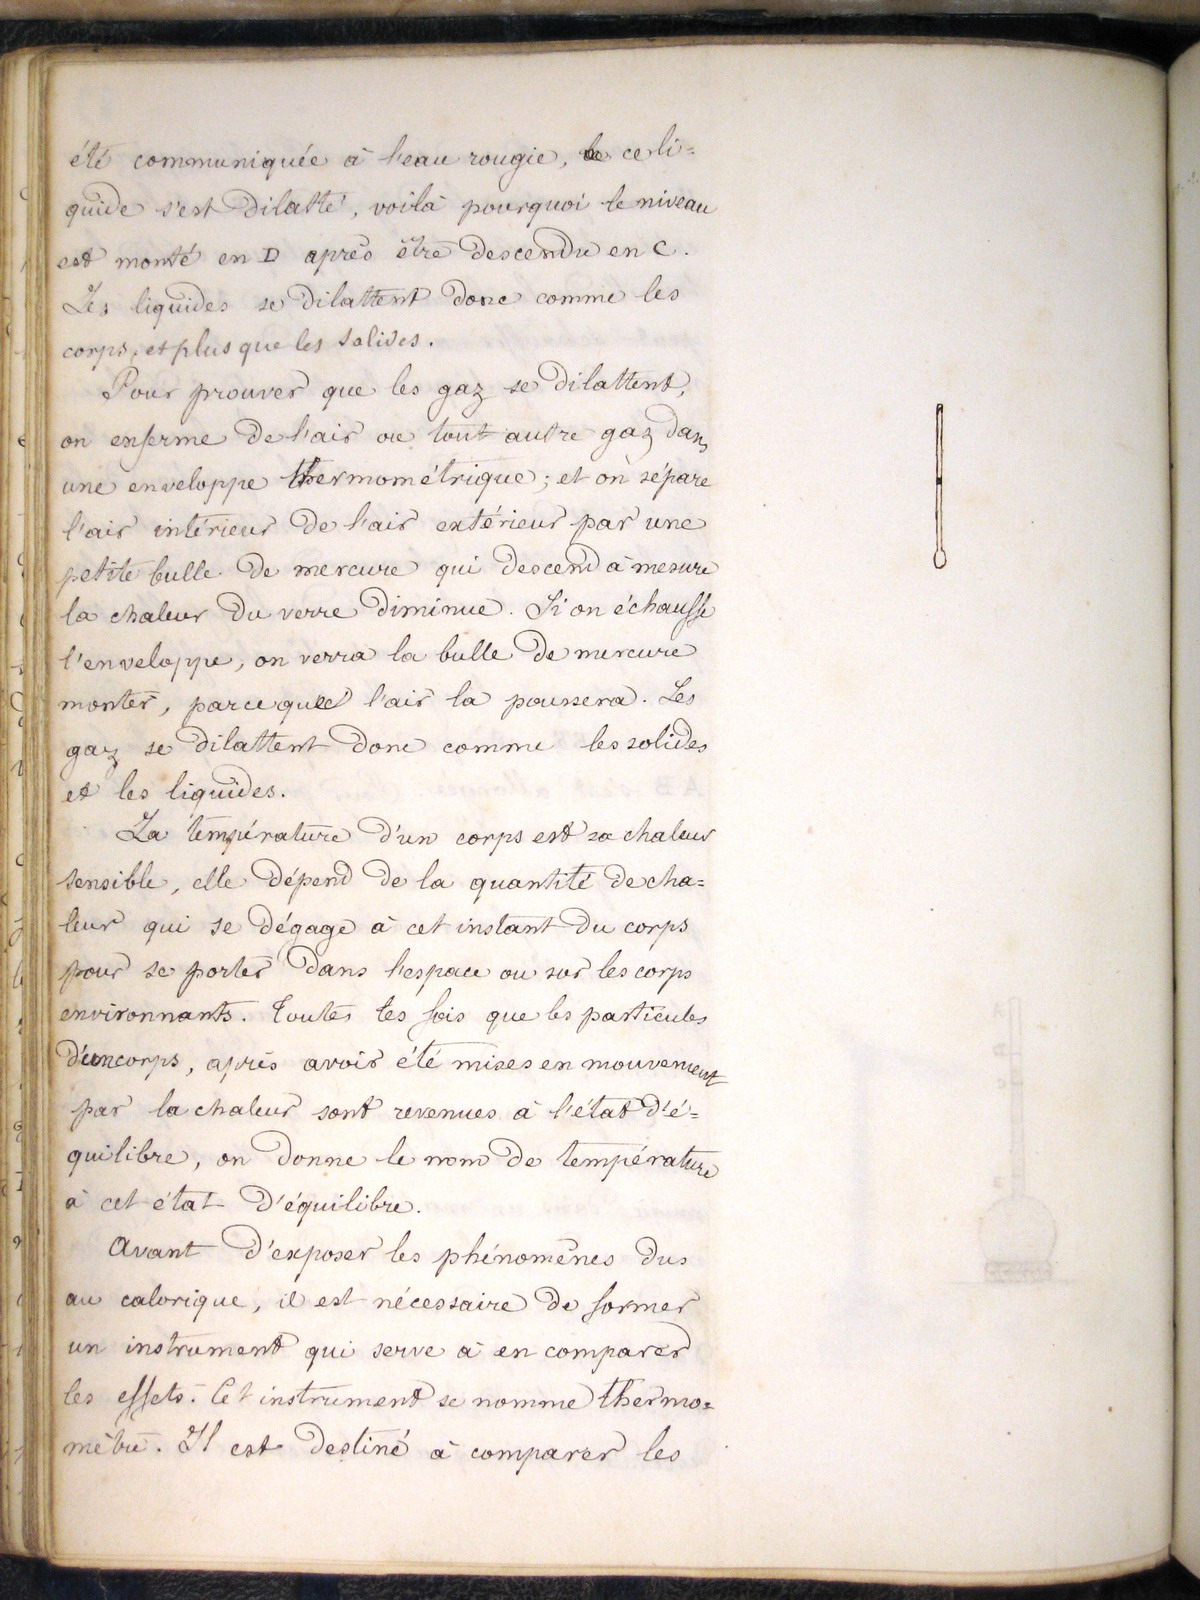 été communiquée à l'eau rougie, ce li=
quide s'est dilatté, voilà pourquoi le niveau
est monté en D après être descendu en C.
Les liquides se dilattent donc comme les
corps, et plus que les solides.
Pour prouver que les gaz se dilattent,
on enferme de l'air ou tout autre gaz dans
une enveloppe thermométrique; et on sépare
l'air intérieur de l'air extérieur par une
petite bulle de mercure qui descend à mesure
la chaleur du verre diminue. Si on échauffe
l'enveloppe, on verra la bulle de mercure
monter, parceque l'air la poussera. Les
gaz se dilattent donc comme les solides
et les liquides.
La température d'un corps est sa chaleur
sensible, elle dépend de la quantité de cha=
leur qui se dégage à cet instant du corps
pour se porter dans l'espace ou sur les corps
environnants. Toutes les fois que les particules
d'un corps, après avoir été mises en mouvement
par la chaleur sont revenues à l'état d'é=
quilibre, on donne le nom de température
à cet état d'équilibre.
Avant d'exposer les phénomènes dus
au calorique, il est nécessaire de former
un instrument qui serve à en comparer
les effets. Cet instrument se nomme thermo=
mètre. Il est destiné à comparer les